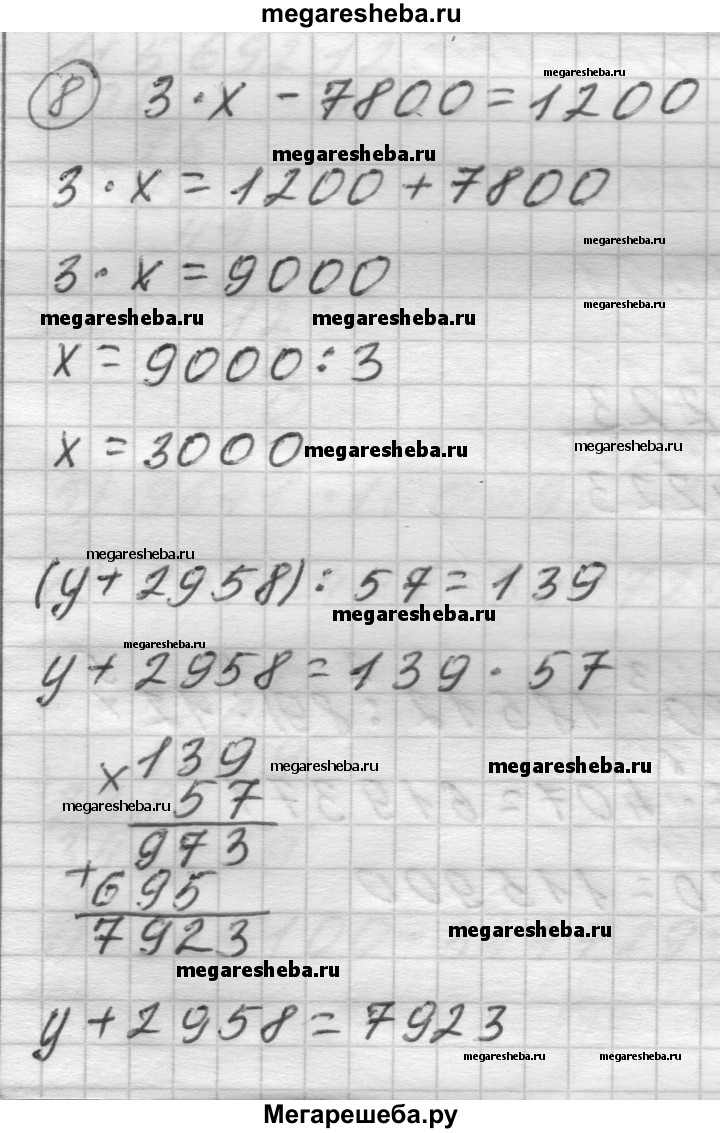 megaresheba.ru
megaresheba.ru
8 3 · x - 7800 = 1200
megaresheba.ru
3 · x = 1200 + 7800
megaresheba.ru
3 · x = 9000
megaresheba.ru
megaresheba.ru megaresheba.ru
x = 9000 : 3
x = 3000 megaresheba.ru megaresheba.ru
megaresheba.ru
(y + 2958) : 57 = 139
megaresheba.ru
megaresheba.ru
y + 2958 = 139 · 57
x 139 megaresheba.ru megaresheba.ru
megaresheba.ru 57
973
+ 695
7923 megaresheba.ru
megaresheba.ru
y + 2958 = 7923
megaresheba.ru megaresheba.ru
Мегарешеба.ру